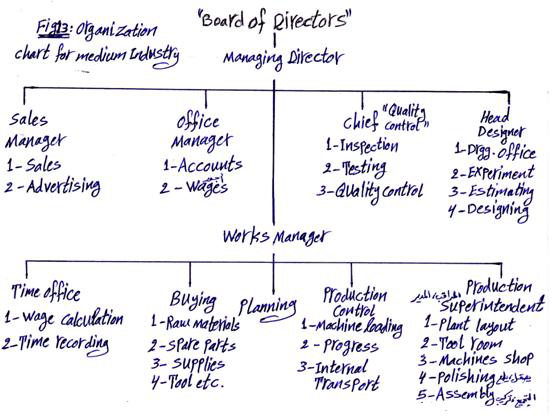 Fig 13: Organization
chart for medium Industry
"Board of Directors"
Managing Director
Sales
Manager
1- Sales
2- Advertising
Office
Manager
1- Accounts
2- Wages
Chief "Quality
control"
1- Inspection
2- Testing
3- Quality control
Head
Designer
1- Drgg. office
2- Experiment
3- Estimating
4- Designing
Works Manager
Time office
1- Wage calculation
2- Time recording
Buying
1- Raw materials
2- Spare parts
3- Supplies
4- Tool etc.
Planning
Production
Control
1- Machine loading
2- Progress
3- Internal
Transport
Production
Superintendent
1- Plant layout
2- Tool room
3- Machines shop
4- Polishing
5- Assembly